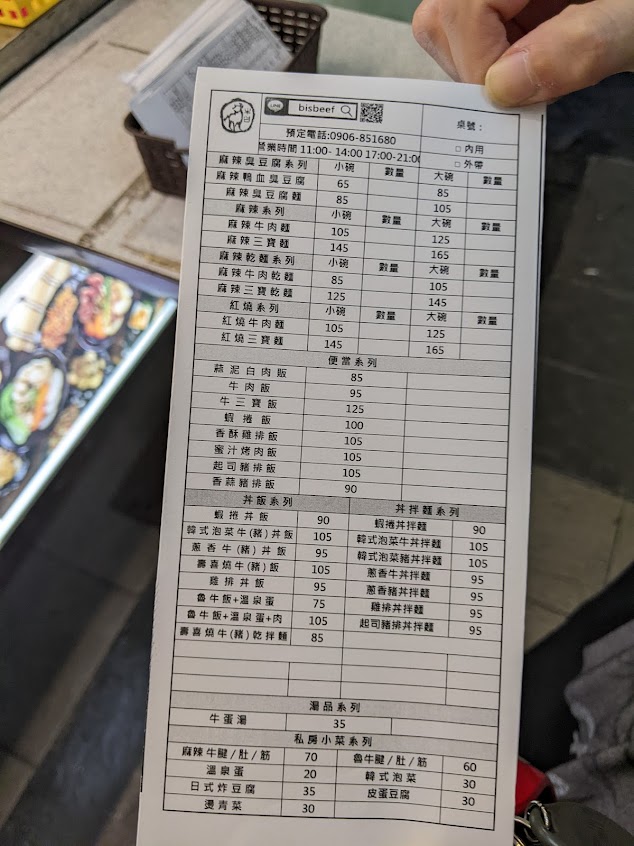 LINE bisbeef
桌號：
預定電話:0906-851680
□ 內用
營業時間 11:00- 14:00 17:00-21:00
□ 外帶
麻辣臭豆腐系列 小碗 數量 大碗 數量
麻辣鴨血臭豆腐 65 85
麻辣臭豆腐麵 85 105
麻辣系列 小碗 數量 大碗 數量
麻辣牛肉麵 105 125
麻辣三寶麵 145 165
麻辣乾麵系列 小碗 數量 大碗 數量
麻辣牛肉乾麵 85 105
麻辣三寶乾麵 125 145
紅燒系列 小碗 數量 大碗 數量
紅燒牛肉麵 105 125
紅燒三寶麵 145 165
便當系列
蒜泥白肉飯 85
牛肉飯 95
牛三寶飯 125
蝦捲飯 100
香酥雞排飯 105
蜜汁烤肉飯 105
起司豬排飯 105
香蒜豬排飯 90
丼飯系列 丼拌麵系列
蝦捲丼飯 90 蝦捲丼拌麵 90
韓式泡菜牛(豬)丼飯 105 韓式泡菜牛丼拌麵 105
蔥香牛(豬)丼飯 95 韓式泡菜豬丼拌麵 105
壽喜燒牛(豬)飯 105 蔥香牛丼拌麵 95
雞排丼飯 95 蔥香豬丼拌麵 95
魯牛飯+溫泉蛋 75 雞排丼拌麵 95
魯牛飯+溫泉蛋+肉 105 起司豬排丼拌麵 95
壽喜燒牛(豬)乾拌麵 85
湯品系列
牛蛋湯 35
私房小菜系列
麻辣牛腱/肚/筋 70 魯牛腱/肚/筋 60
溫泉蛋 20 韓式泡菜 30
日式炸豆腐 35 皮蛋豆腐 30
燙青菜 30